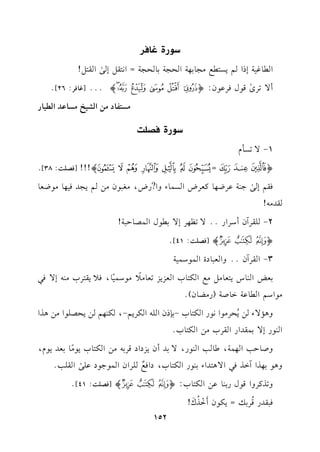 سورة غافر
الطاغية إذا لم يستطع مجابهة الحجة بالحجة = انتقل إلىٰ القتل!
ألا ترىٰ قول فرعون: ﴿ذَرُونِيٓ أَقۡتُلۡ مُوسَىٰ وَلۡيَدۡعُ رَبَّهُۥٓ﴾ . . . [غافر: ٢٦].
مستفاد من الشيخ مساعد الطيار
سورة فصلت
١- لا تسأم
﴿فَٱلَّذِينَ عِندَ رَبِّكَ = يُسَبِّحُونَ لَهُۥ بِٱلَّيۡلِ وَٱلنَّهَارِ وَهُمۡ لَا يَسۡـَٔمُونَ﴾!!! [فصلت: ٣٨].
فقم إلىٰ جنة عرضها كعرض السماء والأرض، مغبون من لم يجد فيها موضعا
لقدمه!
٢- للقرآن أسرار . . لا تظهر إلا بطول المصاحبة!
﴿وَإِنَّهُۥ لَكِتَٰبٌ عَزِيزٞ﴾ [فصلت: ٤١].
٣- القرآن . . والعبادة الموسمية
بعض الناس يتعامل مع الكتاب العزيز تعاملًا موسميًا، فلا يقترب منه إلا في
مواسم الطاعة خاصة (رمضان).
وهؤلاء لن يُحرموا نور الكتاب -بإذن الله الكريم-، لكنهم لن يحصلوا من هذا
النور إلا بمقدار القرب من الكتاب.
وصاحب الهمة، طالب النور، لا بد أن يزداد قربه من الكتاب يومًا بعد يوم،
وهو بهذا آخذ في الاهتداء بنور الكتاب، دافعٌ للران الموجود علىٰ القلب.
وتذكروا قول ربنا عن الكتاب: ﴿وَإِنَّهُۥ لَكِتَٰبٌ عَزِيزٞ﴾ [فصلت: ٤١].
فبقدر قُربك = يكون أَخْذُكَ!
١٥٢